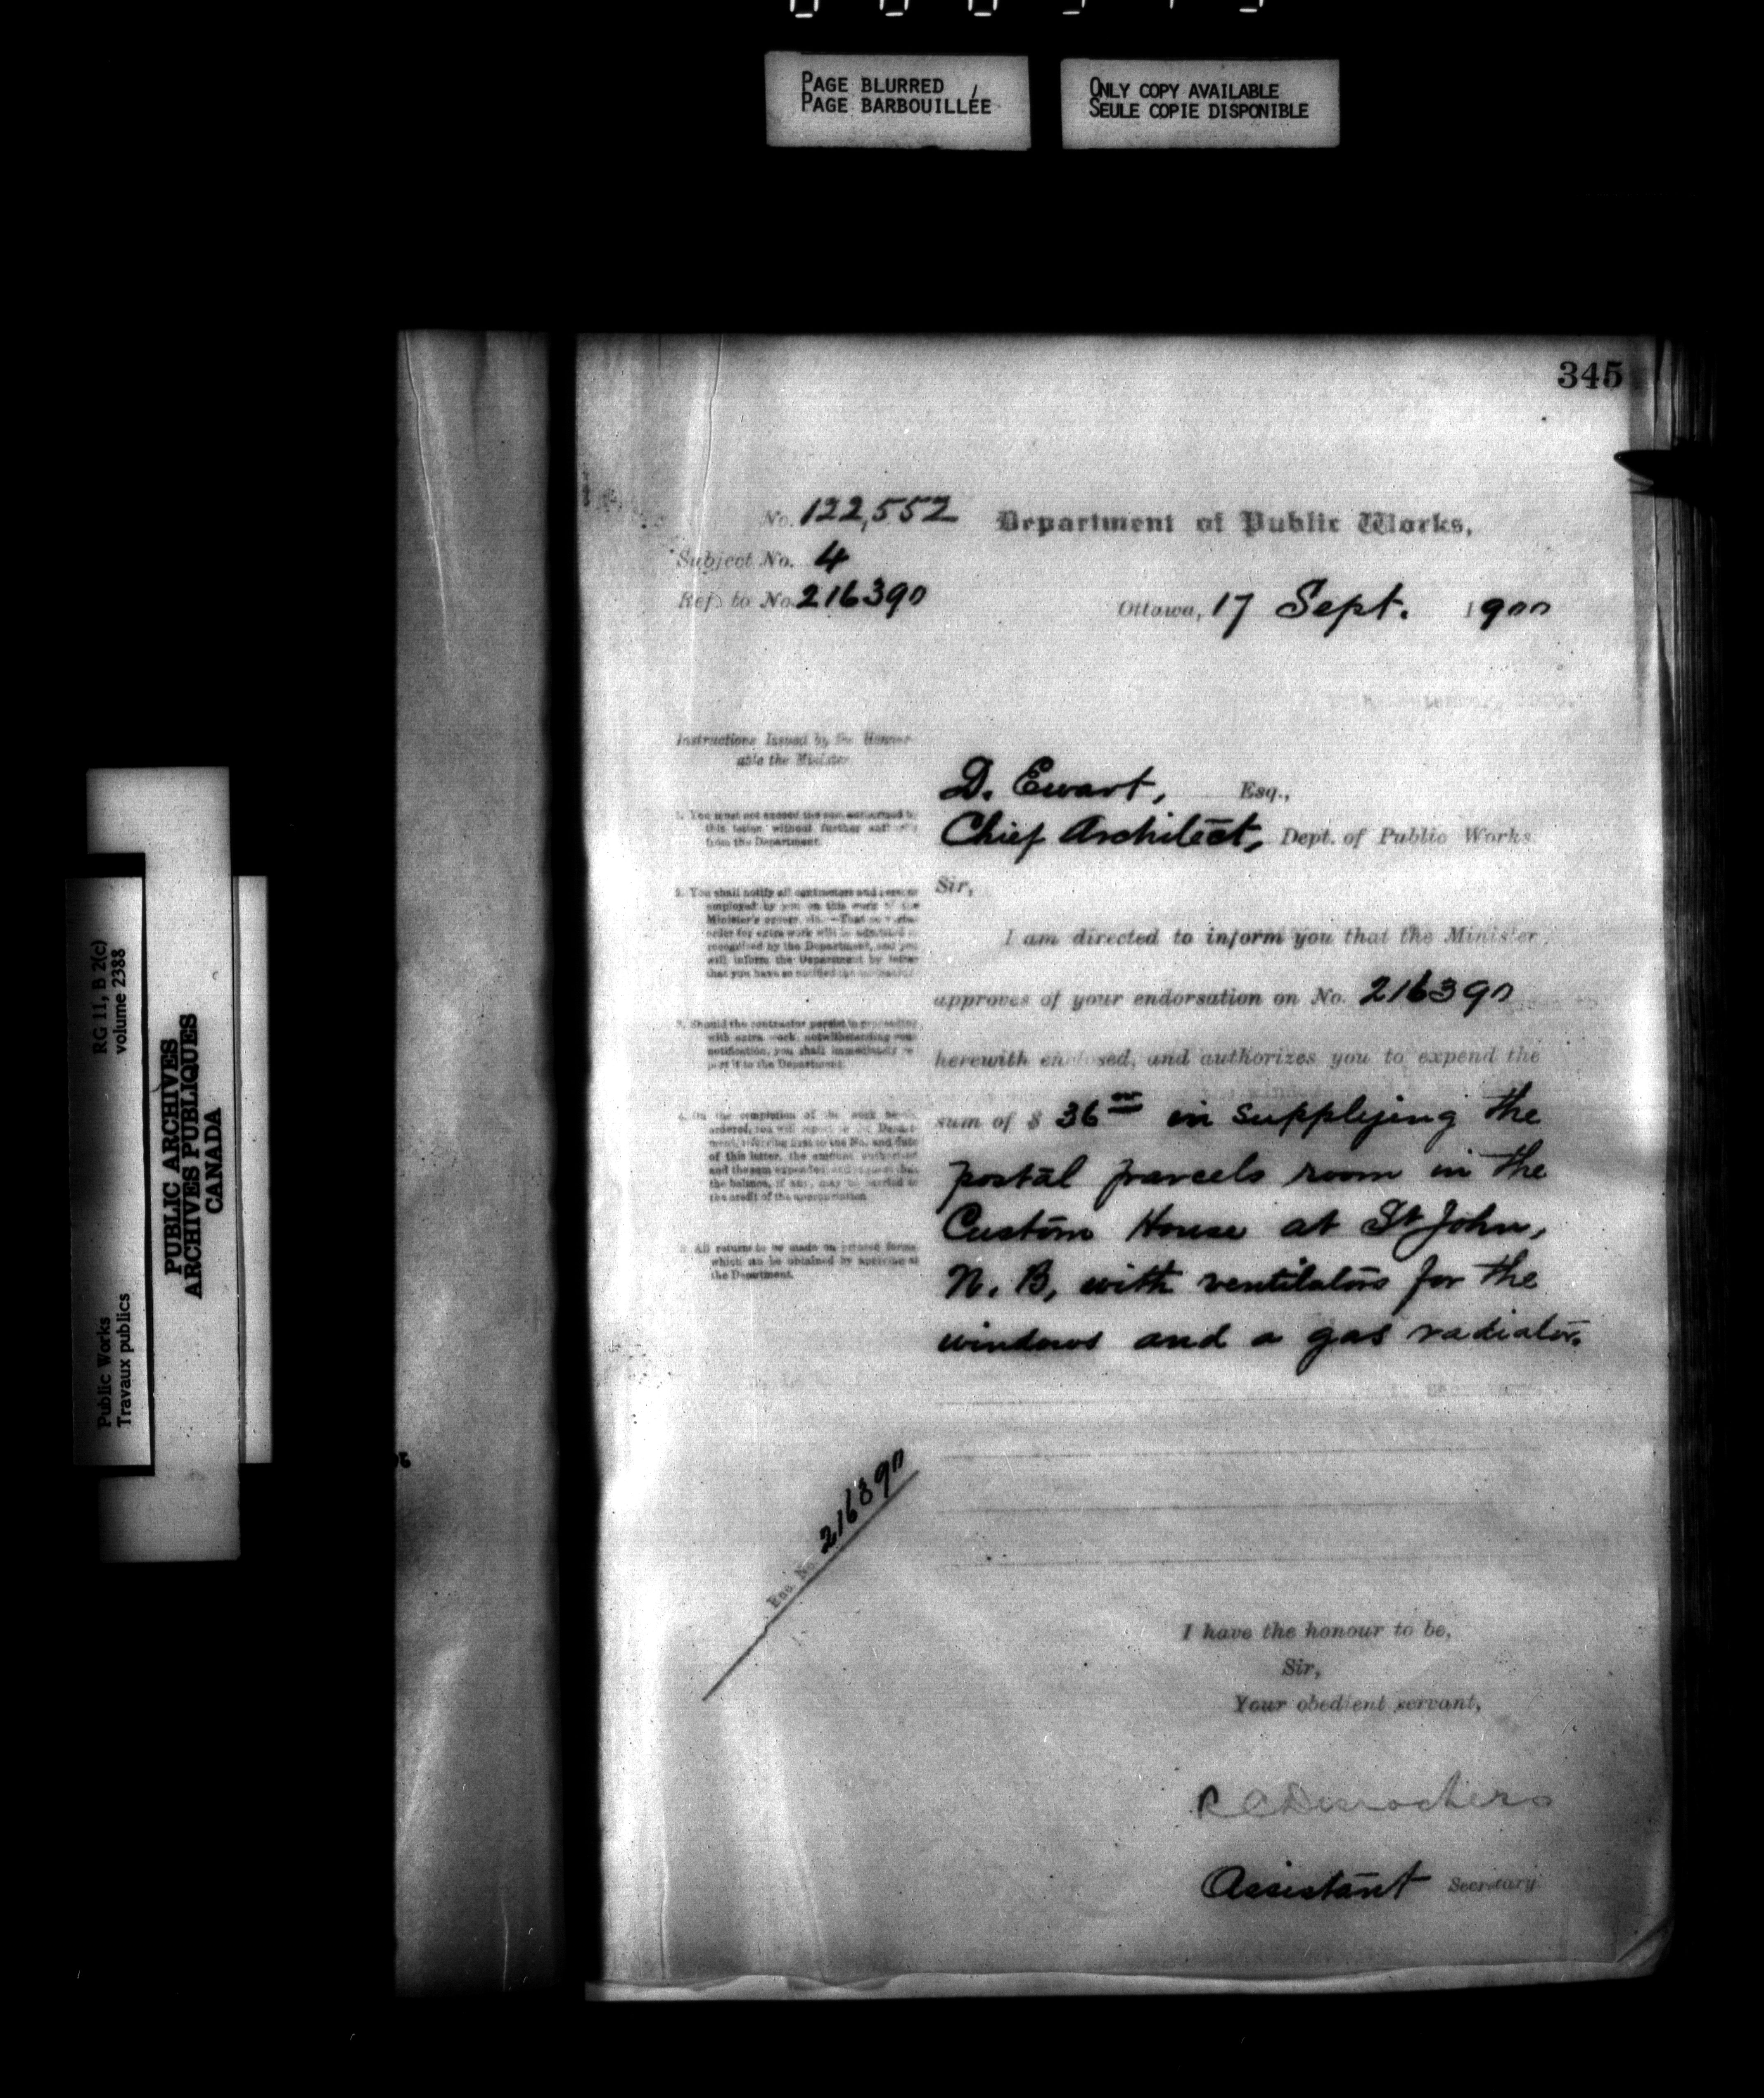 PAGE BLURRED
PAGE BARBOUILLÉE
ONLY COPY AVAILABLE
SEULE COPIE DISPONIBLE
RG 11, B 2(c)
volume 2388
Public Works
Travaux publics
PUBLIC ARCHIVES
ARCHIVES PUBLIQUES
CANADA
345
No. 122,552
Department of Public Works,
Subject No. 4
Ref. to No. 216390
Ottawa, 17 Sept. 1900
Instructions Issued by the Honour-
able the Minister
1. You must not exceed the sum authorized by
this letter without further authority
from the Department.
2. You shall notify all contractors and persons
employed by you on this work of the
Minister's orders, viz. :—That no verbal
order for extra work will be admitted or
recognised by the Department, and you
will inform the Department by letter
that you have so notified the
3. Should the contractor persist in proceeding
with extra work, notwithstanding your
notification, you shall immediately re-
port it to the Department.
4. On the completion of the work
ordered, you will report to the Depart-
ment, referring first to the No. and date
of this letter, the amount authorized
and the sum expended and request that
the balance, if any, may be carried to
the credit of the appropriation
5. All returns to be made on printed forms,
which can be obtained by applying at
the Department.
D. Ewart, Esq.,
Chief Architect, Dept. of Public Works.
Sir,
I am directed to inform you that the Minister
approves of your endorsation on No. 216390
herewith enclosed, and authorizes you to expend the
sum of $ 36 00 in supplying the
postal parcels room in the
Custom House at St John,
N. B, with ventilators for the
windows and a gas radiator.
Enc. No. 216390
I have the honour to be,
Sir,
Your obedient servant,
R C Desrochers
Assistant Secretary.